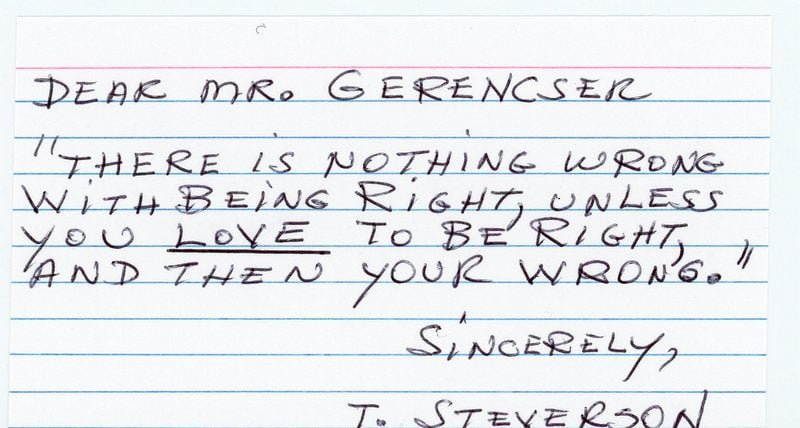 DEAR MR. GERENCSER
"THERE IS NOTHING WRONG
WITH BEING RIGHT, UNLESS
YOU LOVE TO BE RIGHT,
AND THEN YOUR WRONG."
SINCERELY,
T. STEVERSON